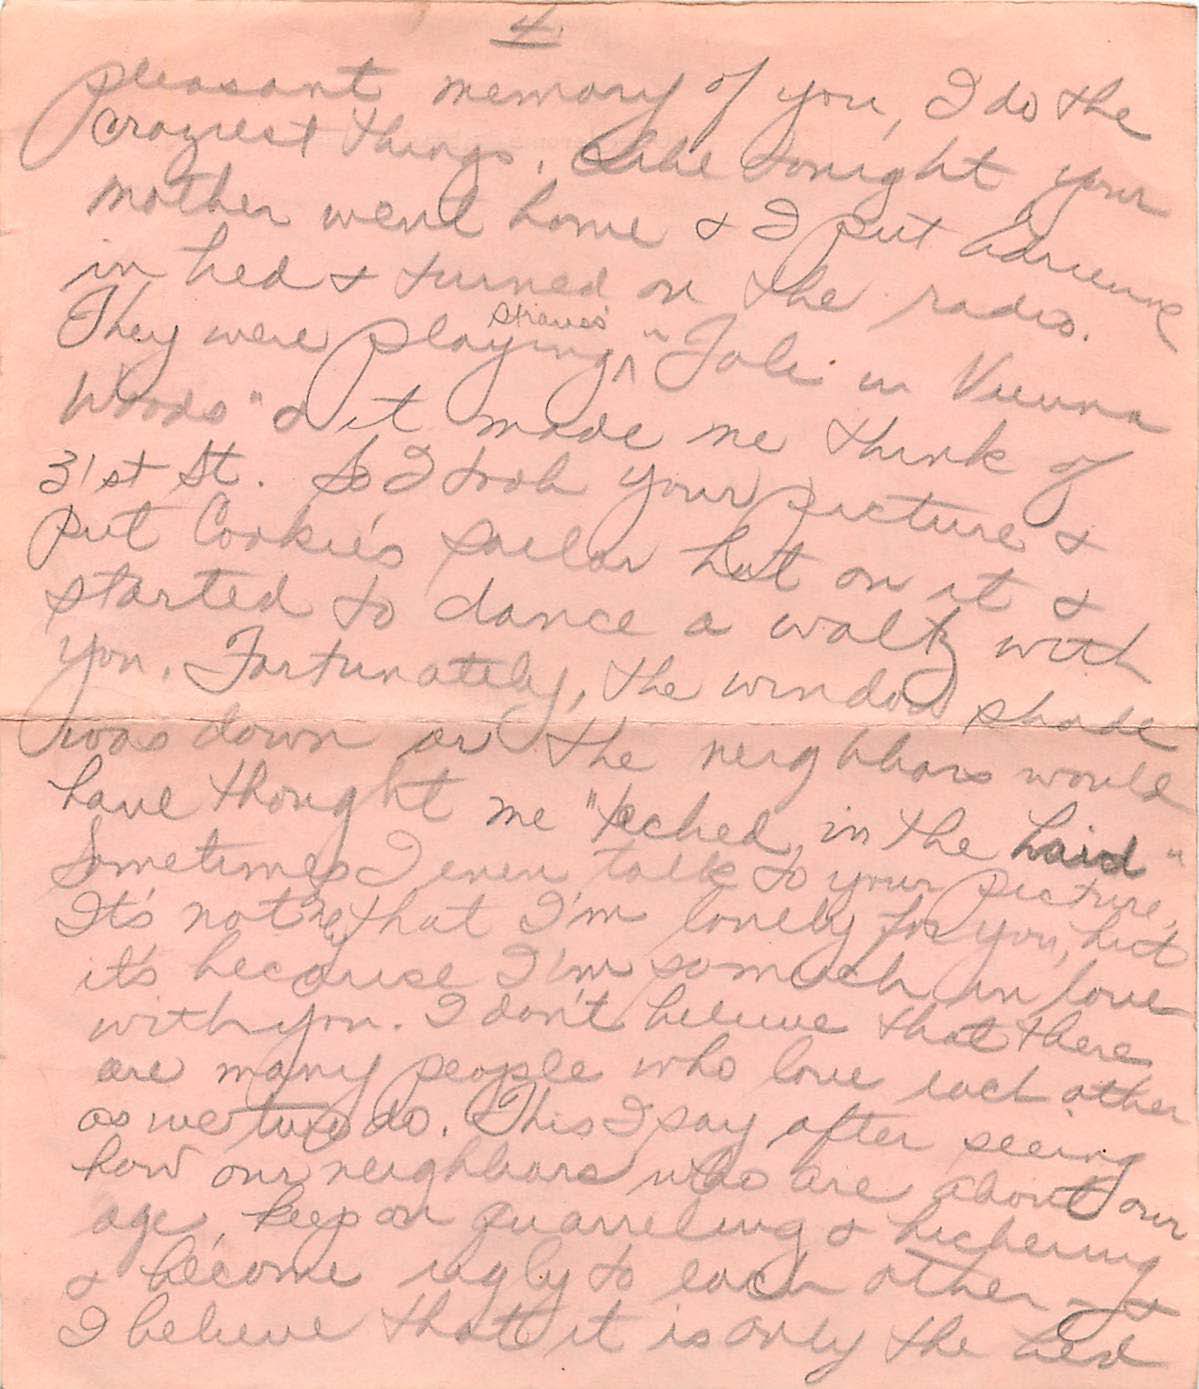 4
pleasant memory of you, I do the
craziest things. Like tonight your
mother went home & I put Adrienne
in bed & turned on the radio.
They were playing ^ Strauss' "Tales in Vienna
Woods" & it made me think of
31st St. So I took your picture &
put Cookie's sailor hat on it &
started to dance a waltz with
you. Fortunately, the window shade
was down or the neighbors would
have thought me "teched in the haid"
Sometimes I even talk to your picture.
It's not that I'm lonely for you, but
it's because I'm so much in love
with you. I don't believe that there
are many people who love each other
as we two do. This I say after seeing
how our neighbors who are about our
age, keep on quarreling & bickering
& become ugly to each other - &
I believe that it is only the bed